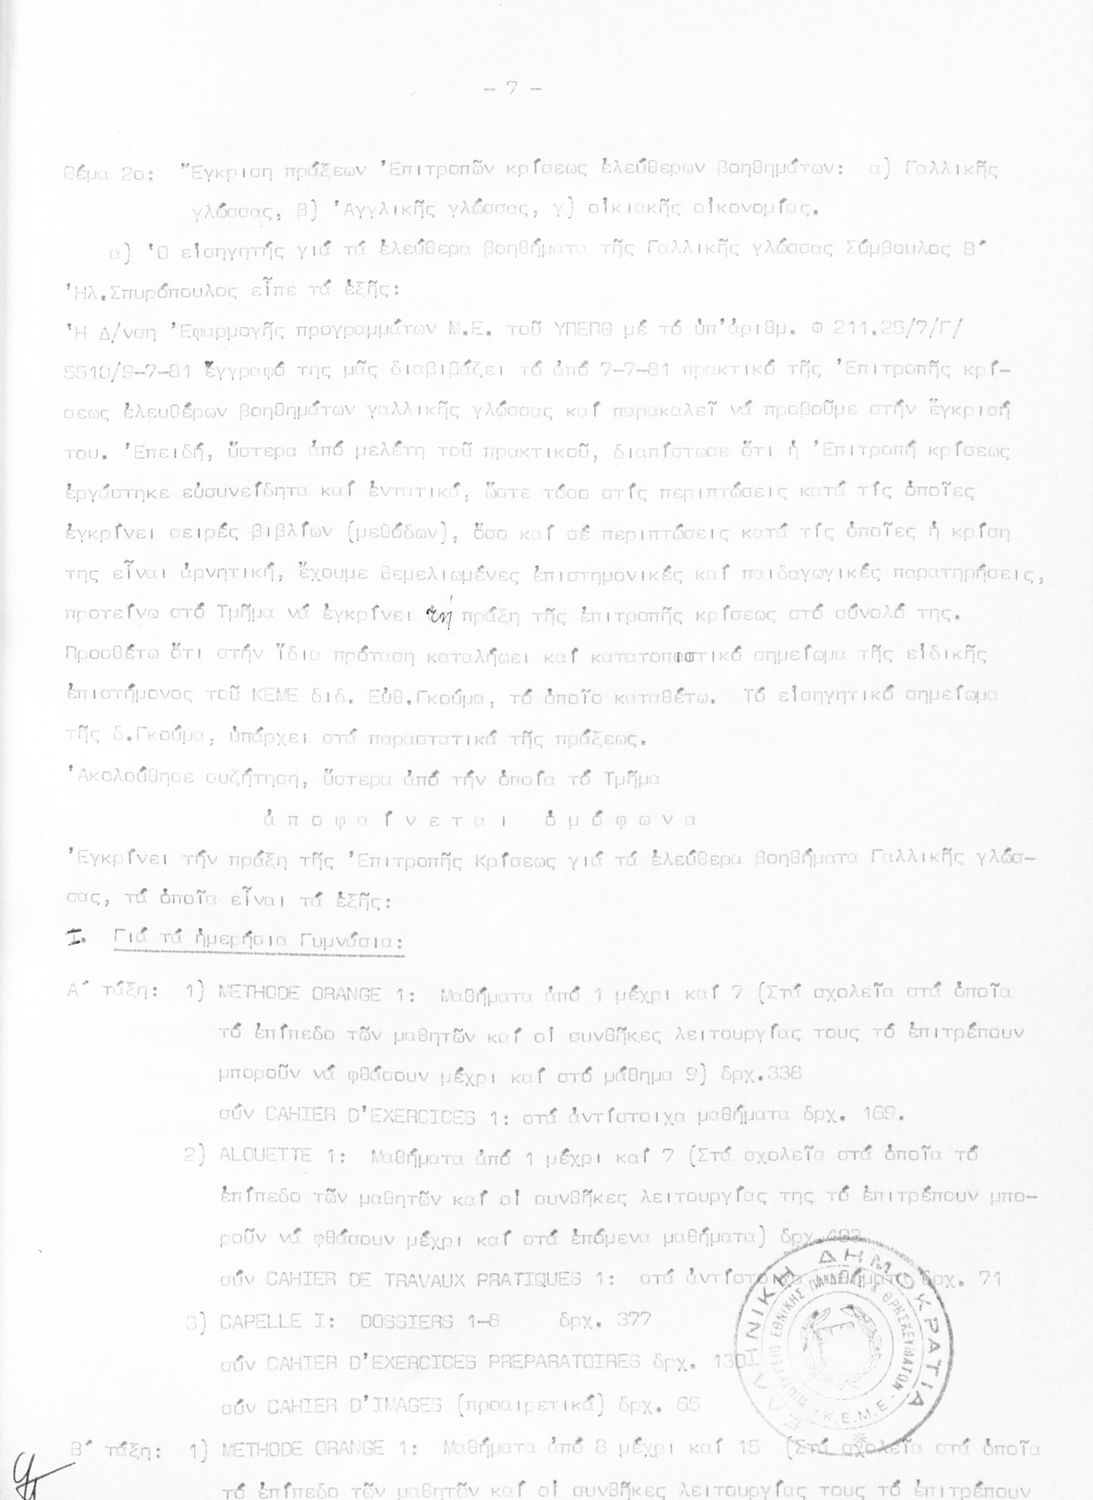 - 7 -
θέμα 2ο: Ἔγκριση πράξεων Ἐπιτροπῶν κρίσεως ἐλεύθερων βοηθημάτων: α) Γαλλικῆς
γλώσσας, β) Ἀγγλικῆς γλώσσας, γ) οἰκιακῆς οἰκονομίας.
α) Ὁ εἰσηγητής γιά τά ἐλεύθερα βοηθήματα τῆς Γαλλικῆς γλώσσας Σύμβουλος Β´
Ἠλ.Σπυρόπουλος εἶπε τά ἑξῆς:
Ἡ Δ/νση Ἐφαρμογῆς προγραμμάτων Μ.Ε. τοῦ ΥΠΕΠΘ μέ τό ὑπ'ἀριθμ. Φ 211.25/7/Γ/
5510/9-7-81 ἔγγραφό της μᾶς διαβιβάζει τό ἀπό 7-7-81 πρακτικό τῆς Ἐπιτροπῆς κρί-
σεως ἐλευθέρων βοηθημάτων γαλλικῆς γλώσσας καί παρακαλεῖ νά προβοῦμε στήν ἔγκρισή
του. Ἐπειδή, ὕστερα ἀπό μελέτη τοῦ πρακτικοῦ, διαπίστωσε ὅτι ἡ Ἐπιτροπή κρίσεως
ἐργάστηκε εὐσυνείδητα καί ἐντατικά, ὥστε τόσο στίς περιπτώσεις κατά τίς ὁποῖες
ἐγκρίνει σειρές βιβλίων (μεθόδων), ὅσο καί σέ περιπτώσεις κατά τίς ὁποῖες ἡ κρίση
της εἶναι ἀρνητική, ἔχουμε θεμελιωμένες ἐπιστημονικές καί παιδαγωγικές παρατηρήσεις,
προτείνω στό Τμῆμα νά ἐγκρίνει τή πράξη τῆς ἐπιτροπῆς κρίσεως στό σύνολό της.
Προσθέτω ὅτι στήν ἴδια πρόταση καταλήωει καί κατατοπιστικό σημείωμα τῆς εἰδικῆς
ἐπιστήμονος τοῦ ΚΕΜΕ διδ. Εὐθ.Γκούμα, τό ὁποῖο καταθέτω. Τό εἰσηγητικό σημείωμα
τῆς δ.Γκούμα, ὑπάρχει στά παραστατικά τῆς πράξεως.
Ἀκολούθησε συζήτηση, ὕστερα ἀπό τήν ὁποία τό Τμῆμα
ἀ π ο φ α ί ν ε τ α ι ὁ μ ό φ ω ν α
Ἐγκρίνει τήν πράξη τῆς Ἐπιτροπῆς Κρίσεως γιά τά ἐλεύθερα βοηθήματα Γαλλικῆς γλώσ-
σας, τά ὁποῖα εἶναι τά ἑξῆς:
I. Γιά τά ἡμερήσια Γυμνάσια:
Α´ τάξη: 1) METHODE ORANGE 1: Μαθήματα ἀπό 1 μέχρι καί 7 (Στά σχολεῖα στά ὁποῖα
τό ἐπίπεδο τῶν μαθητῶν καί οἱ συνθῆκες λειτουργίας τους τό ἐπιτρέπουν
μποροῦν νά φθάσουν μέχρι καί στό μάθημα 9) δρχ.338
σύν CAHIER D'EXERCICES 1: στά ἀντίστοιχα μαθήματα δρχ. 169.
2) ALOUETTE 1: Μαθήματα ἀπό 1 μέχρι καί 7 (Στά σχολεῖα στά ὁποῖα τό
ἐπίπεδο τῶν μαθητῶν καί οἱ συνθῆκες λειτουργίας της τό ἐπιτρέπουν μπο-
ροῦν νά φθάσουν μέχρι καί στά ἑπόμενα μαθήματα) δρχ.
σύν CAHIER DE TRAVAUX PRATIQUES 1: στά ἀντίστοιχα μαθήματα δρχ. 71
3) CAPELLE I: DOSSIERS 1-8 δρχ. 377
σύν CAHIER D'EXERCICES PREPARATOIRES δρχ. 130
σύν CAHIER D'IMAGES (προαιρετικά) δρχ. 65
ΕΛΛΗΝΙΚΗ ΔΗΜΟΚΡΑΤΙΑ
ΥΠΟΥΡΓΕΙΟ ΕΘΝΙΚΗΣ ΠΑΙΔΕΙΑΣ & ΘΡΗΣΚΕΥΜΑΤΩΝ
Κ.Ε.Μ.Ε.
Β´ τάξη: 1) METHODE ORANGE 1: Μαθήματα ἀπό 8 μέχρι καί 15 (Στά σχολεῖα στά ὁποῖα
τό ἐπίπεδο τῶν μαθητῶν καί οἱ συνθῆκες λειτουργίας τους τό ἐπιτρέπουν